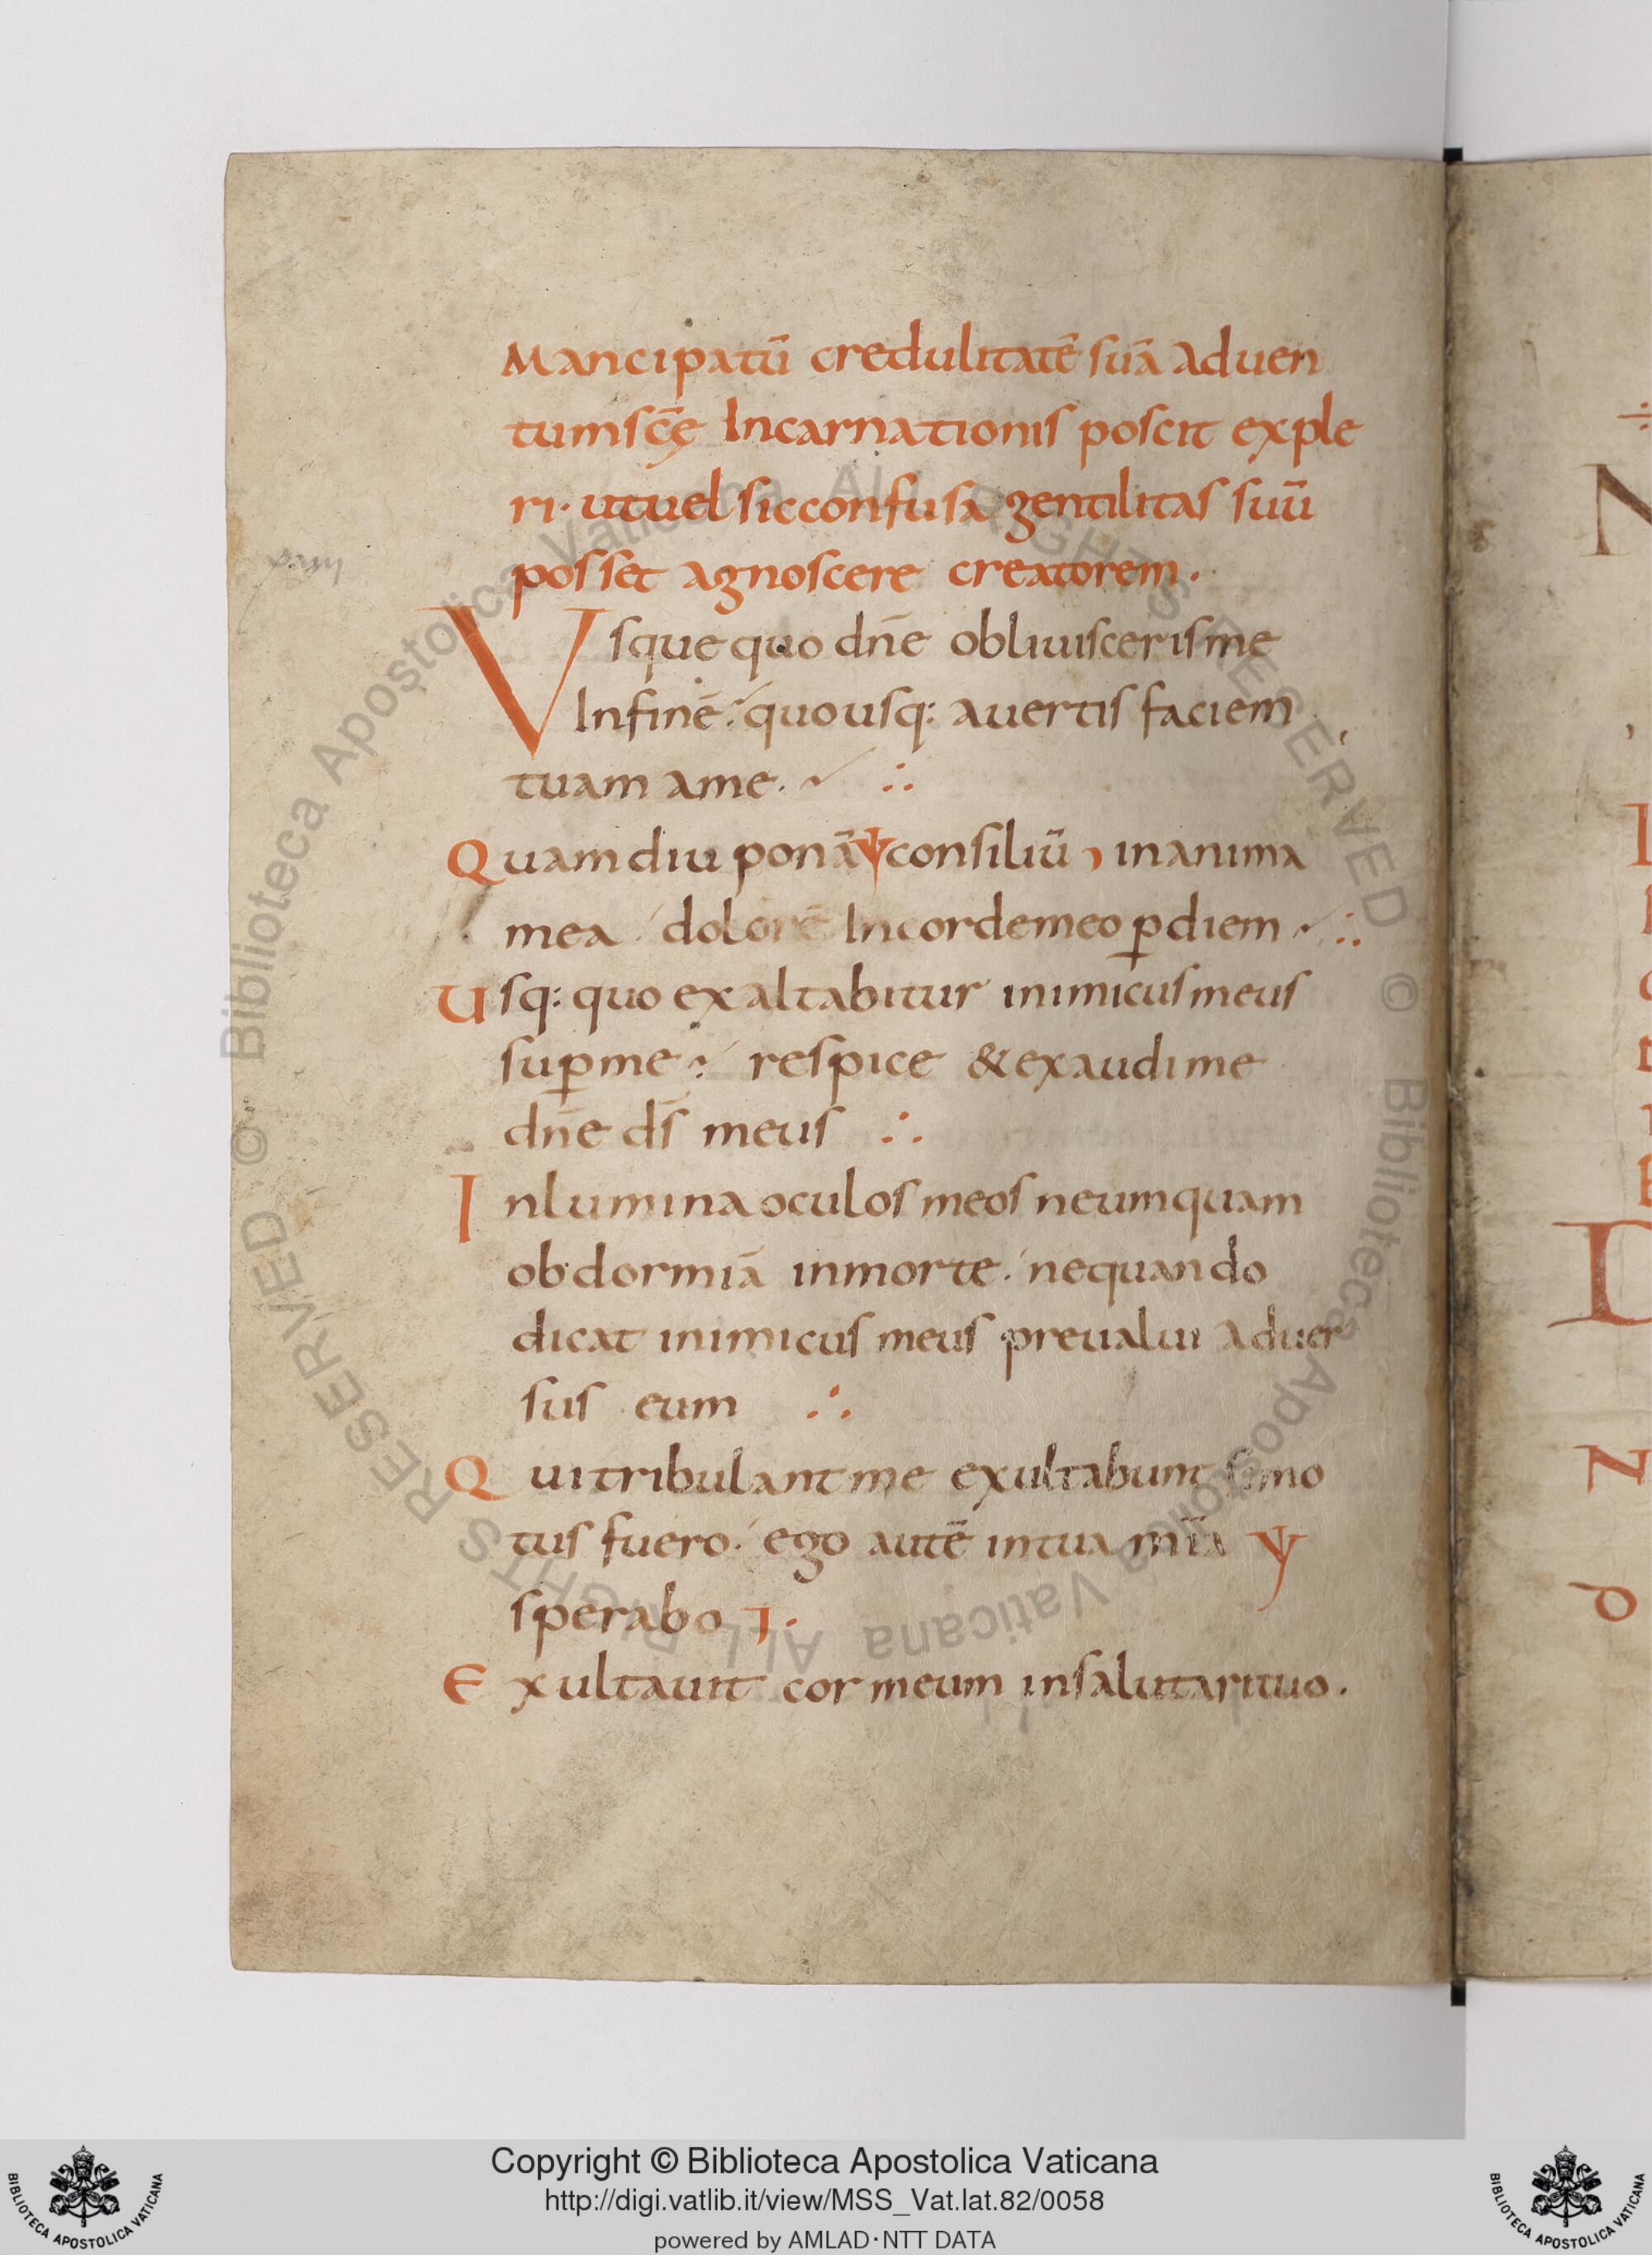 Mancipatū credulitatē suā aduen
tum scę̄ Incarnationis poscit exple
ri· utuel sicconfusa gentilitas suū
posset agnoscere creatorem·
Vsque quo dn̄e obliuiscerisme
Infinē·quousq: auertis faciem
tuam ame. ∴
Quamdiu ponā consiliū, inanima
mea dolorē Incordemeo ꝑdiem ∴
Usq: quo exaltabitur inimicusmeus
suꝑme: respice & exaudime
dn̄e ds̄ meus ∴
Inlumina oculos meos neumquam
ob·dormiā inmorte. nequando
dicat inimicus meus preualui aduer
sus eum ∴
Qui tribulantme exultabunt simo
tus fuero. ego autē intua mīa
sperabo
Exultauit cor meum insalutarituo.
Copyright © Biblioteca Apostolica Vaticana
http://digi.vatlib.it/view/MSS_Vat.lat.82/0058
powered by AMLAD·NTT DATA
BIBLIOTECA APOSTOLICA VATICANA
BIBLIOTECA APOSTOLICA VATICANA
© Biblioteca Apostolica Vaticana ALL RIGHTS RESERVED
© Biblioteca Apostolica Vaticana ALL RIGHTS RESERVED